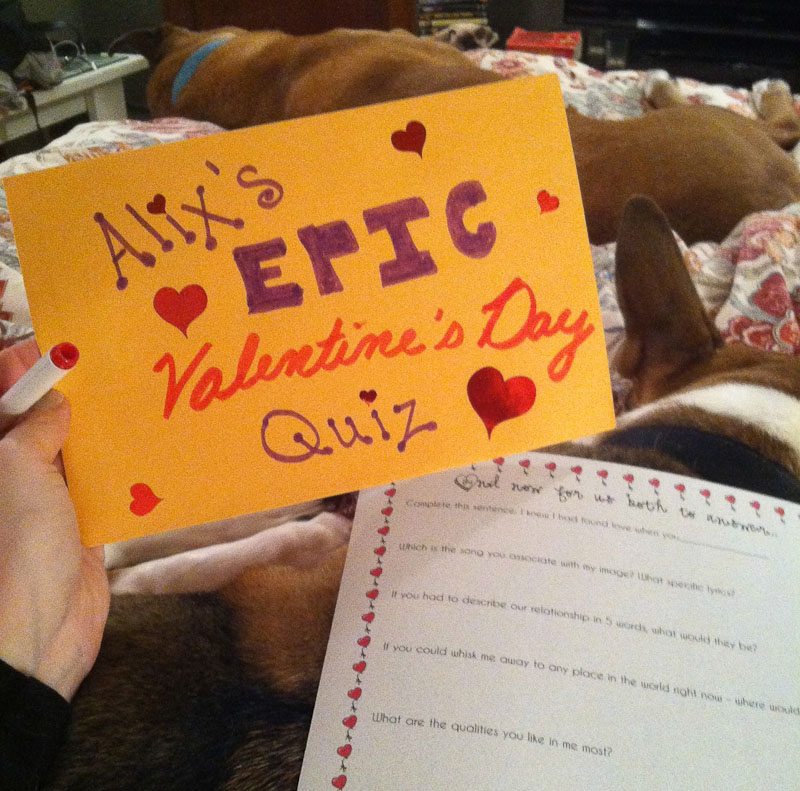 Alix's
EPIC
Valentine's Day
Quiz
And now for us both to answer...
Complete this sentence. I knew I had found love when you
Which is the song you associate with my image? What specific lyrics?
If you had to describe our relationship in 5 words, what would they be?
If you could whisk me away to any place in the world right now - where would
What are the qualities you like in me most?